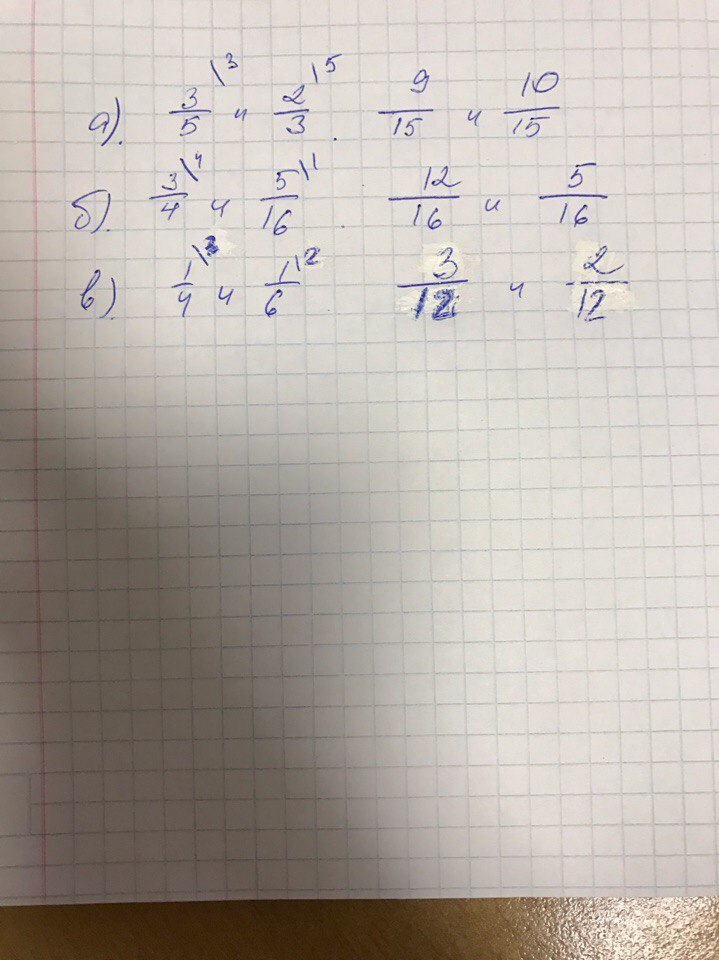 а). 3/5 \3 и 2/3 \5. 9/15 и 10/15
б). 3/4 \4 и 5/16 \1. 12/16 и 5/16
в) 1/4 \3 и 1/6 \2 3/12 и 2/12